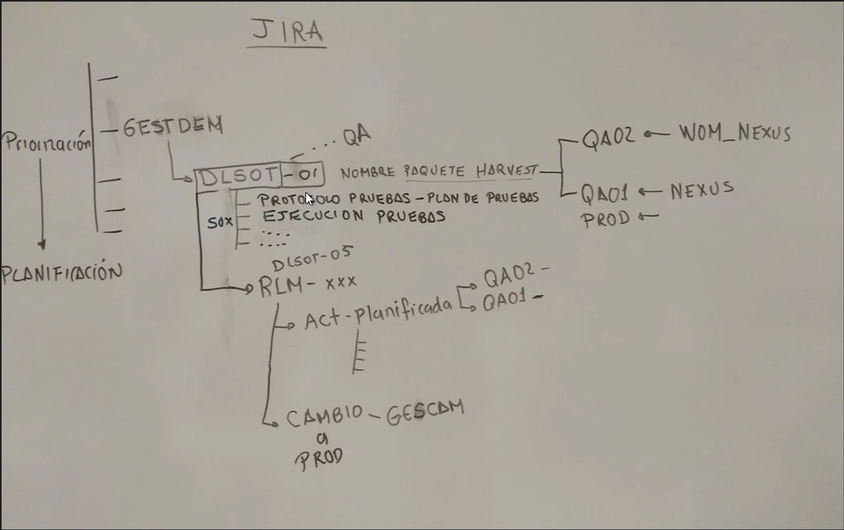 JIRA
Priorización
GESTDEM
PLANIFICACIÓN
... QA
DLSOT - 01
NOMBRE PAQUETE HARVEST
QA02 ← WOM_NEXUS
QA01 ← NEXUS
PROD ←
SOX
PROTOCOLO PRUEBAS - PLAN DE PRUEBAS
EJECUCION PRUEBAS
.....
.....
DLSOT-05
RLM - xxx
ACT - Planificada
QA02 -
QA01 -
CAMBIO - GESCAM
a
PROD